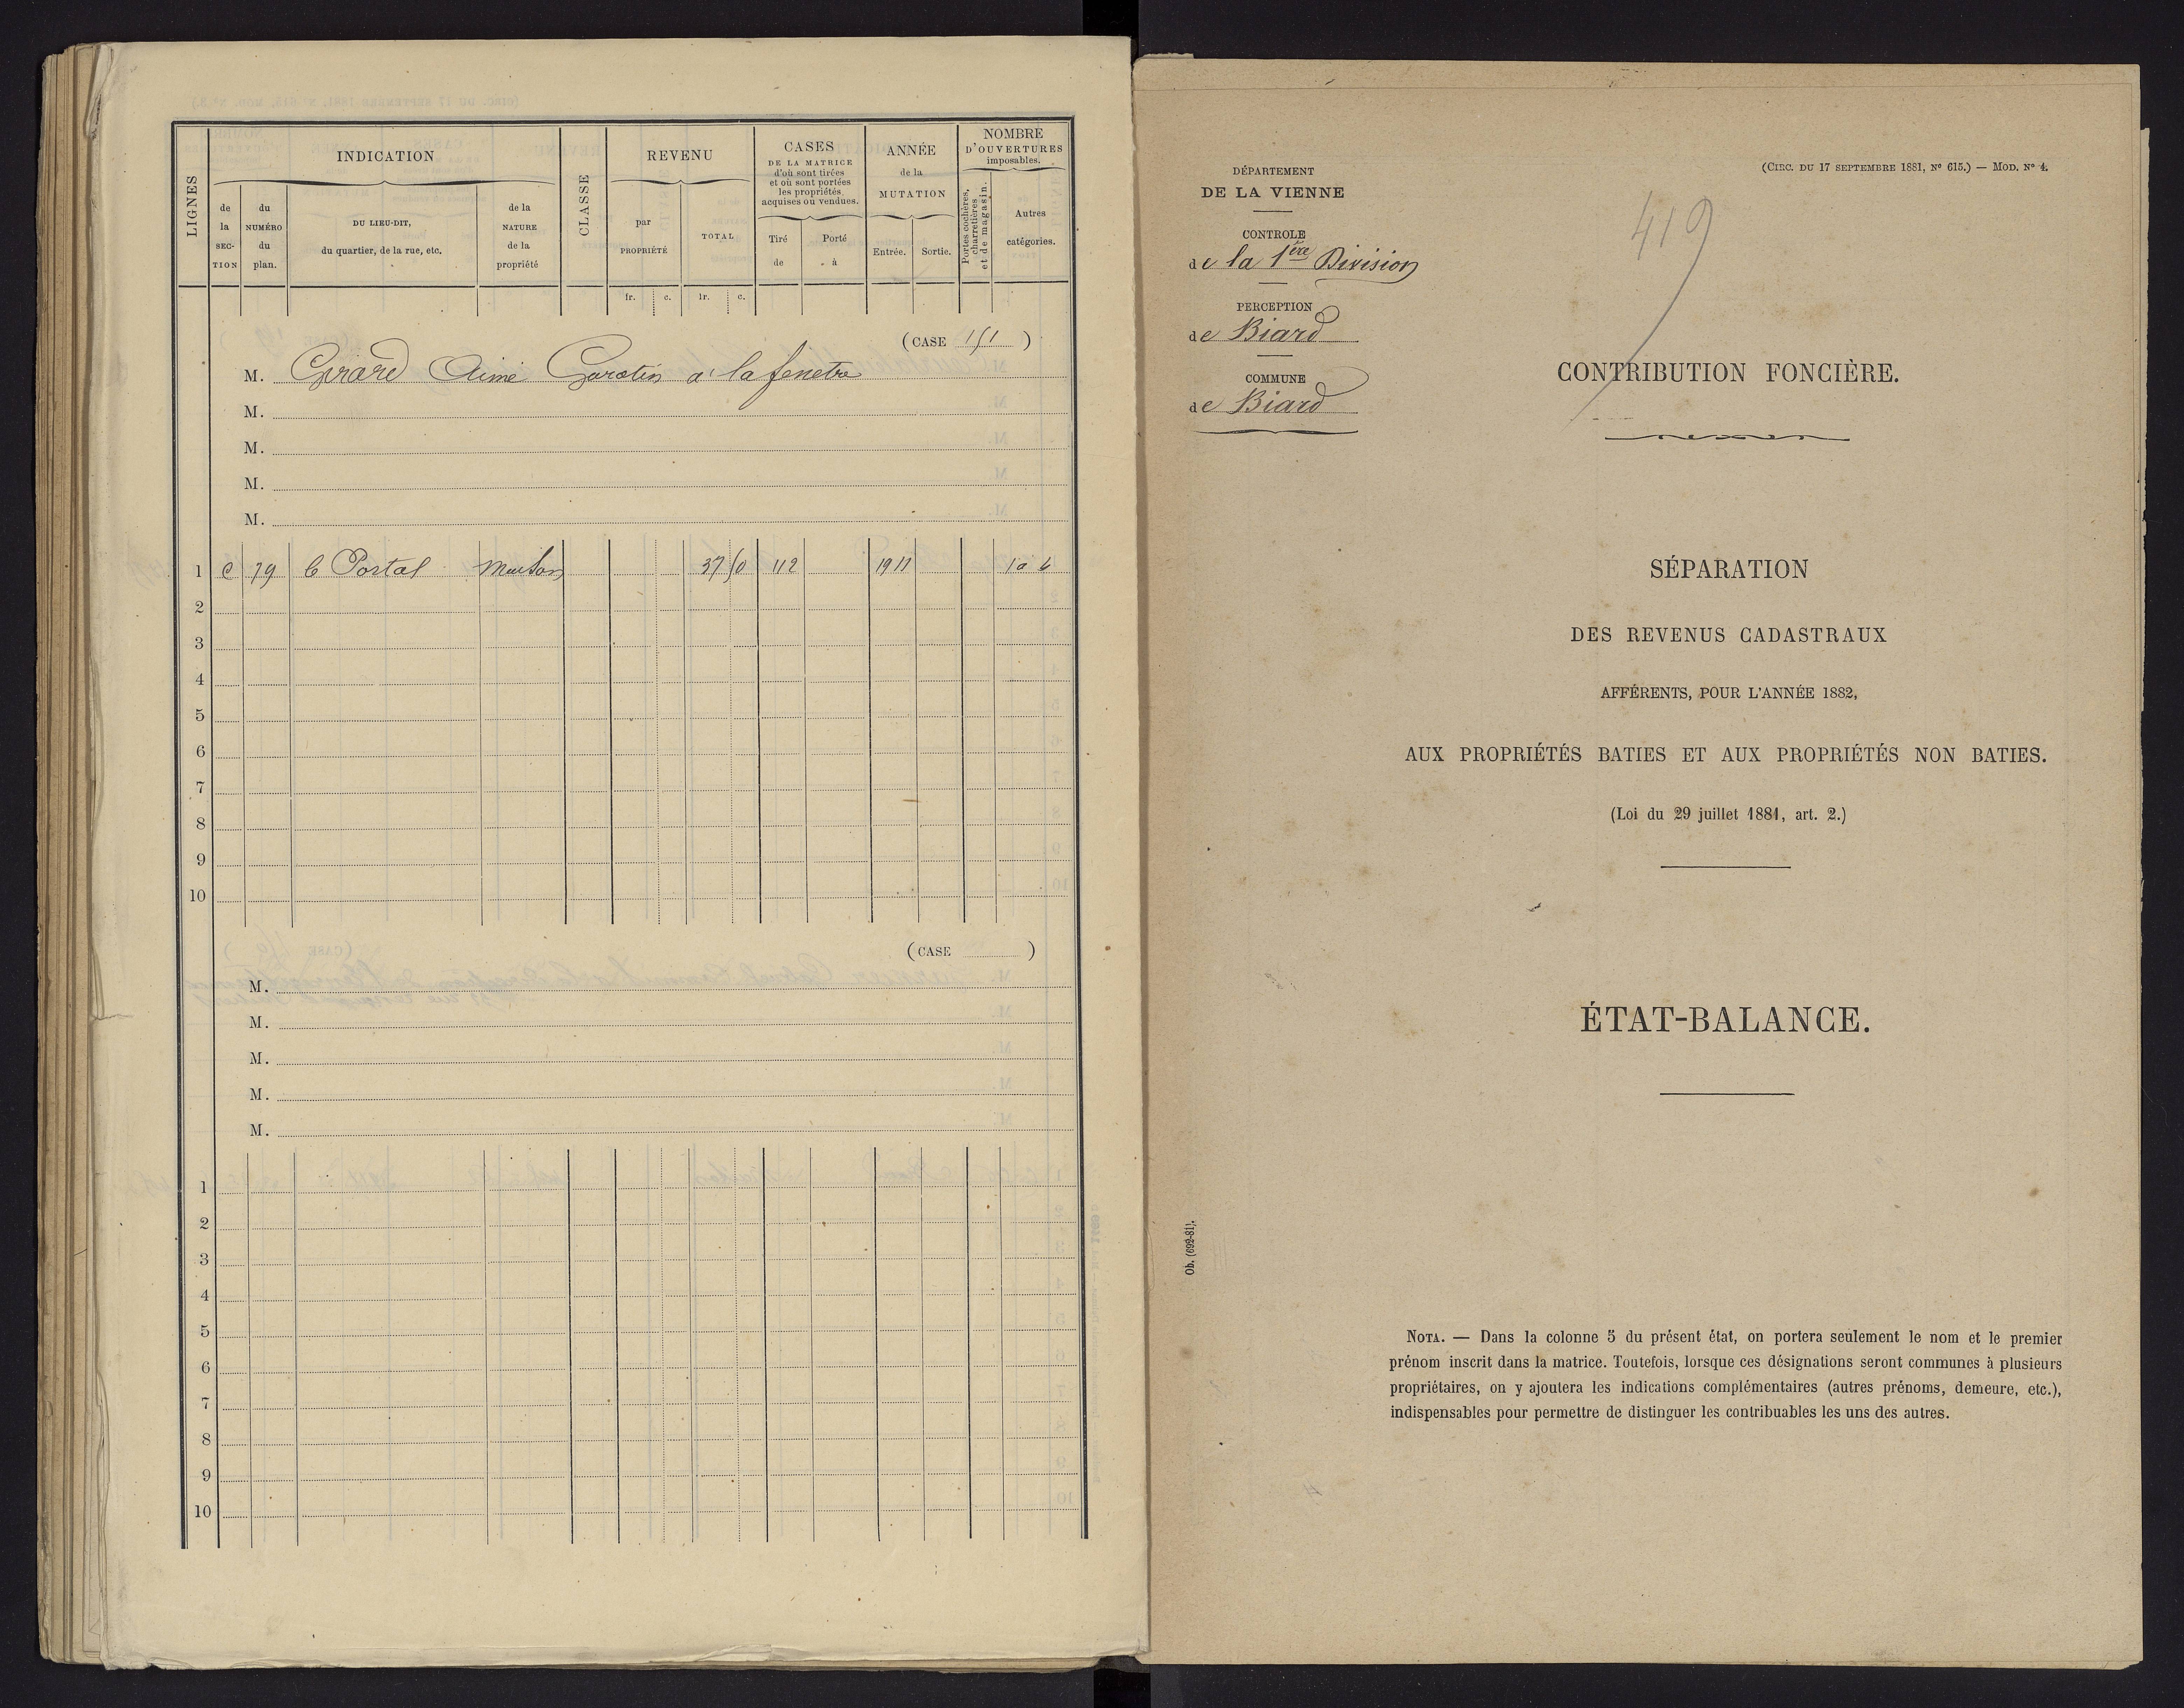 LIGNES
INDICATION
de la SECTION
du NUMÉRO du plan.
DU LIEU-DIT, du quartier, de la rue, etc.
de la NATURE de la propriété
CLASSE
REVENU
par PROPRIÉTÉ
TOTAL
CASES
DE LA MATRICE
d'où sont tirées
et où sont portées
les propriétés
acquises ou vendues.
Tiré de
Porté à
ANNÉE
de la
MUTATION
Entrée.
Sortie.
NOMBRE
D'OUVERTURES
imposables.
Portes cochères, charretières et de magasin.
Autres catégories.
fr. c. fr. c.
(CASE 151)
M. Girard Aimé à la fenetre
M.
M.
M.
M.
1 C 79 Portal Maison 37 50 112 1911
2
3
4
5
6
7
8
9
10
(CASE )
M.
M.
M.
M.
M.
1
2
3
4
5
6
7
8
9
10
DÉPARTEMENT
DE LA VIENNE
CONTROLE
de la 1ère Division
PERCEPTION
de Biard
COMMUNE
de Biard
(CIRC. DU 17 SEPTEMBRE 1881, Nº 615.) — MOD. Nº 4.
419
CONTRIBUTION FONCIÈRE.
SÉPARATION
DES REVENUS CADASTRAUX
AFFÉRENTS, POUR L'ANNÉE 1882,
AUX PROPRIÉTÉS BATIES ET AUX PROPRIÉTÉS NON BATIES.
(Loi du 29 juillet 1881, art. 2.)
ÉTAT-BALANCE.
Ob. (692-81).
NOTA. — Dans la colonne 5 du présent état, on portera seulement le nom et le premier
prénom inscrit dans la matrice. Toutefois, lorsque ces désignations seront communes à plusieurs
propriétaires, on y ajoutera les indications complémentaires (autres prénoms, demeure, etc.),
indispensables pour permettre de distinguer les contribuables les uns des autres.